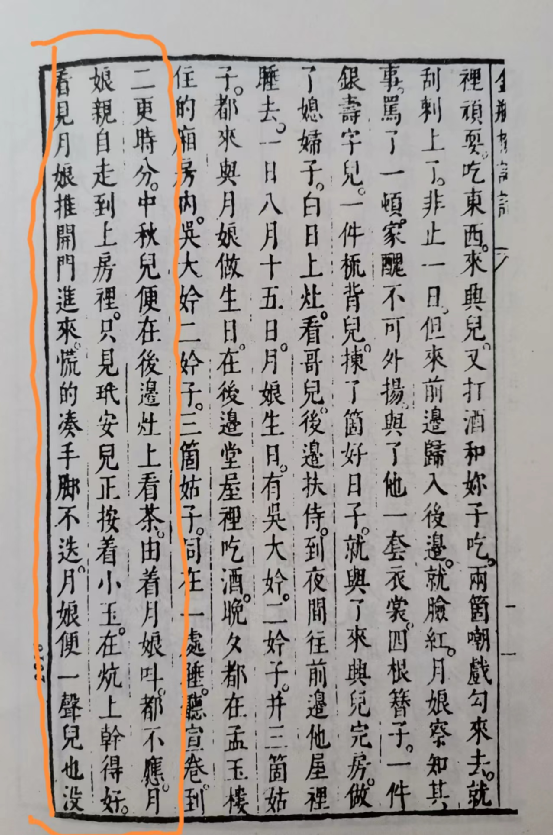 金瓶梅詞話
裡頑耍吃東西。來興兒又打酒和妳子吃。兩箇嘲戲勾來去。就
刮剌上了。非止一日。但來前邊歸入後邊。就臉紅。月娘察知其
事。罵了一頓。家醜不可外揚。與了他一套衣裳。四根簪子。一件
銀壽字兒。一件梳背兒。揀了箇好日子。就與了來興兒完房。做
了媳婦子。白日上灶。看哥兒。後邊扶侍。到夜間往前邊他屋裡
睡去。一日八月十五日。月娘生日。有吳大妗。二妗子。并三箇姑
子。都來與月娘做生日。在後邊堂屋裡吃酒。晚夕都在孟玉樓
住的廂房內。吳大妗二妗子。三箇姑子。同在一處睡。聽宣卷。到
二更時分。中秋兒便在後邊灶上看茶。由着月娘叫。都不應。月
娘親自走到上房裡。只見玳安兒正按着小玉。在炕上幹得好。
看見月娘推開門進來。慌的湊手脚不迭。月娘便一聲兒也沒